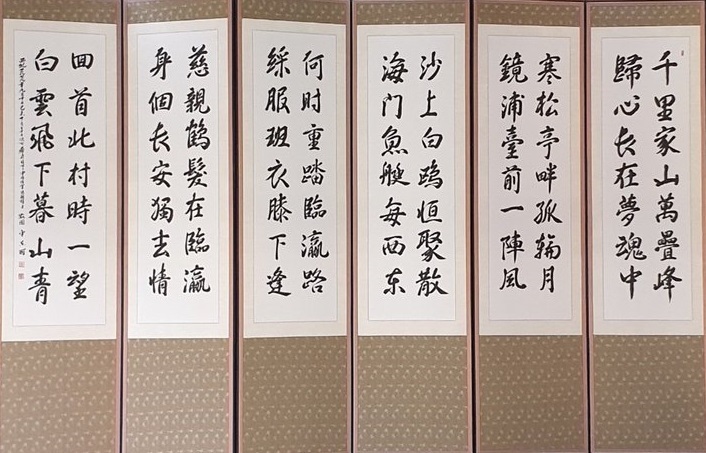 千里家山萬疊峰
歸心长在夢魂中
寒松亭畔孤輪月
鏡浦臺前一陣风
沙上白鷗恒聚散
海门魚艇每西东
何时重踏臨瀛路
綵服班衣膝下逢
慈親鶴髮在臨瀛
身個长安獨去情
回首北村時一望
白雲飛下暮山青